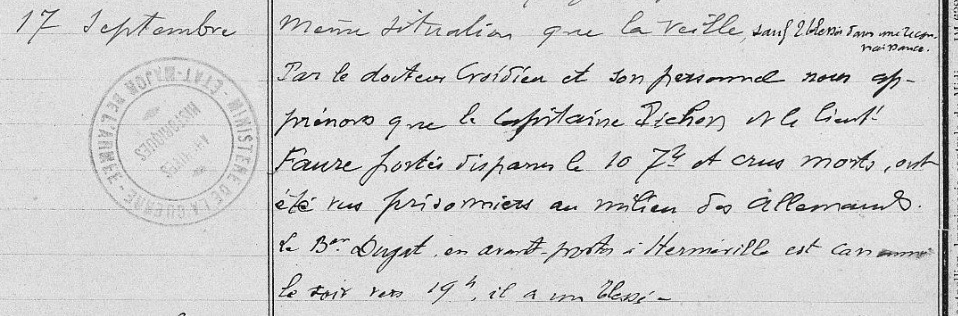 17 Septembre
Même situation que la veille, sauf 2 blessés dans une recon
naissance.
Par le docteur Croidieu et son personnel nous ap-
prenons que le Capitaine Pichon et le lieut!
Faure portés disparus le 10 7bre et crus morts, ont
été vus prisonniers au milieu des Allemands.
Le Bon Dugat, en avant-postes à Herméville est canonné
le soir vers 19h, il a un blessé -
MINISTÈRE DE LA GUERRE - ÉTAT-MAJOR DE L'ARMÉE
ARCHIVES
HISTORIQUES